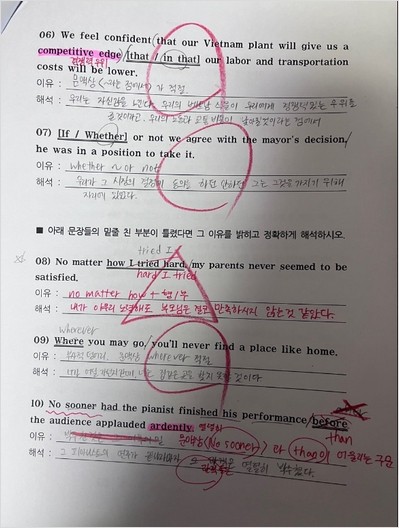 06) We feel confident that our Vietnam plant will give us a
competitive edge [that / in that] our labor and transportation
경쟁력 우위
costs will be lower.
이유 : 문맥상 (~라는 점에서) 가 적절
해석 : 우리는 자신감을 느낀다. 우리의 베트남 공장이 우리에게 경쟁력있는 우위를
07) [If / Whether] or not we agree with the mayor's decision,
he was in a position to take it.
이유 : whether ~ or not
해석 : 우리가 그 시장의 결정에 동의를 하던 안하던 그는 그것을 가지기 위해
■ 아래 문장들의 밑줄 친 부분이 틀렸다면 그 이유를 밝히고 정확하게 해석하시오.
tried I
08) No matter how I tried hard, my parents never seemed to be
satisfied.
hard I tried
이유 : no matter how + 형/부
해석 : 내가 아무리 노력해도 부모님은 결코 만족하시지 않은것 같았다.
wherever
09) Where you may go, you'll never find a place like home.
이유 : 문맥상 wherever 적절
해석 :
10) No sooner had the pianist finished his performance before
than
the audience applauded ardently. 열렬히
이유 : 문맥상 (No sooner) 와 than이 어울리는 구문
해석 : 그 피아니스트의 연주가 열렬히 박수쳤다.